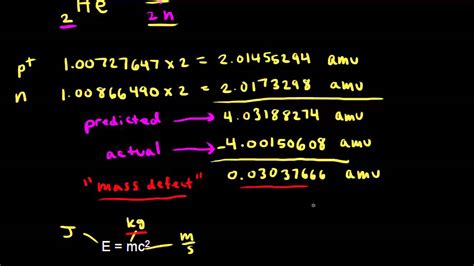 ₂He 2n
p⁺ 1.00727647 x 2 = 2.01455294 amu
n 1.00866490 x 2 = 2.0173298 amu
predicted → 4.03188274 amu
actual → -4.00150608 amu
"mass defect" 0.03037666 amu
J kg
E = mc² m/s